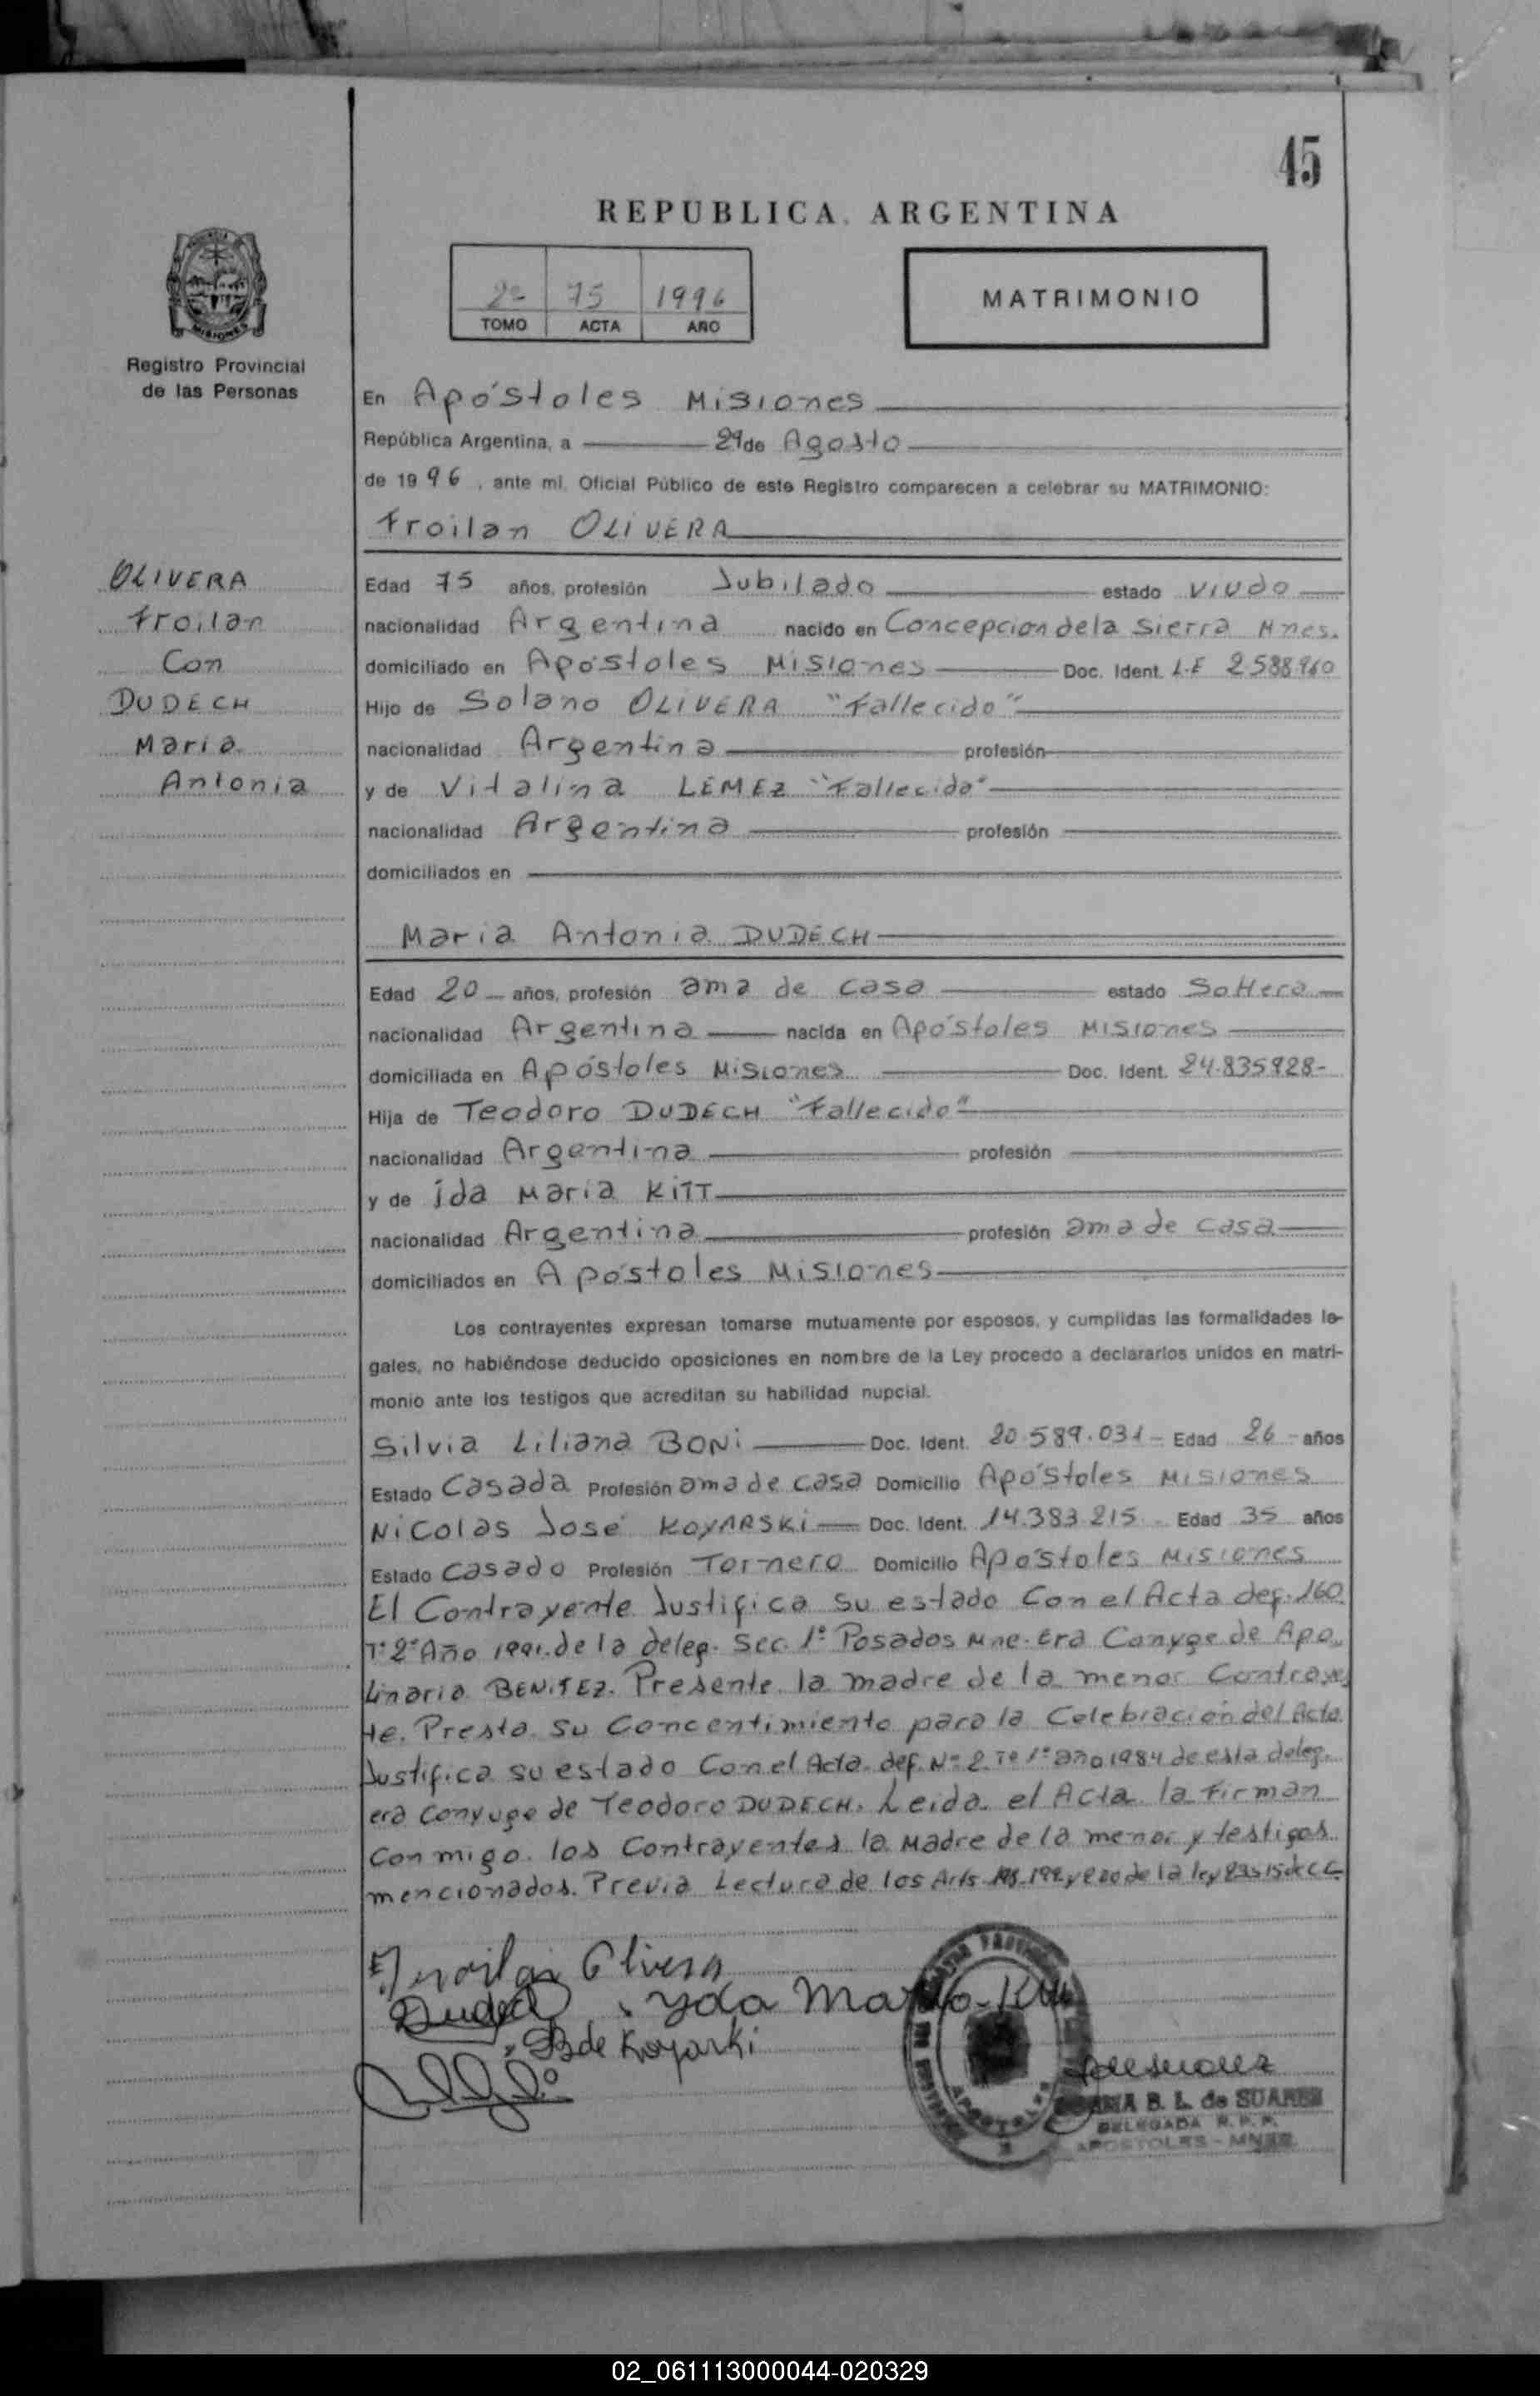 45
REPUBLICA ARGENTINA
2º 75 1996
TOMO ACTA AÑO
MATRIMONIO
MISIONES
Registro Provincial
de las Personas
En Apóstoles Misiones
República Argentina, a 29 de Agosto
de 1996, ante mi, Oficial Público de este Registro comparecen a celebrar su MATRIMONIO:
Froilan OLIVERA
OLIVERA
Froilan
Con
DUDECH
Maria
Antonia
Edad 75 años, profesión Jubilado estado Viudo
nacionalidad Argentina nacido en Concepcion de la Sierra Mnes.
domiciliado en Apóstoles Misiones Doc. Ident. L.E 2.588.960
Hijo de Solano OLIVERA "Fallecido"
nacionalidad Argentina profesión
y de Vitalina LEMEZ "Fallecida"
nacionalidad Argentina profesión
domiciliados en
Maria Antonia DUDECH
Edad 20 años, profesión ama de casa estado Soltera
nacionalidad Argentina nacida en Apóstoles Misiones
domiciliada en Apóstoles Misiones Doc. Ident. 24.835.928-
Hija de Teodoro DUDECH "Fallecido"
nacionalidad Argentina profesión
y de Ida Maria KITT
nacionalidad Argentina profesión ama de casa
domiciliados en Apóstoles Misiones
Los contrayentes expresan tomarse mutuamente por esposos, y cumplidas las formalidades le-
gales, no habiéndose deducido oposiciones en nombre de la Ley procedo a declararlos unidos en matri-
monio ante los testigos que acreditan su habilidad nupcial.
Silvia Liliana BONi Doc. Ident. 20.589.031- Edad 26 años
Estado Casada Profesión ama de casa Domicilio Apóstoles Misiones
Nicolas José KOYARSKi Doc. Ident. 14.383.215 Edad 35 años
Estado Casado Profesión Tornero Domicilio Apóstoles Misiones
El Contrayente Justifica su estado Con el Acta def. 160
Tº 2º Año 1991. de la deleg. Sec. 1º Posadas Mne. Era Conyge de Apo
linaria BENITEZ. Presente la madre de la menor Contrayen
te. Presta su Concentimiento para la Celebración del Acto
Justifica su estado Con el Acta. def. Nº 2 Tº 1º año 1984 de esta deleg.
era Conyuge de Teodoro DUDECH. Leida el Acta la Firman
Conmigo los Contrayentes la Madre de la menor y testigos
mencionados. Previa Lectura de los Arts. 198, 199 y 200 de la ley 23515 de C C
Froilan Olivera
Dudech Yda Maria Kitt
SB de Koyarski
APOSTOLES
B. L. de SUAREZ
DELEGADA R. P. P.
APOSTOLES - MNES.
02_061113000044-020329